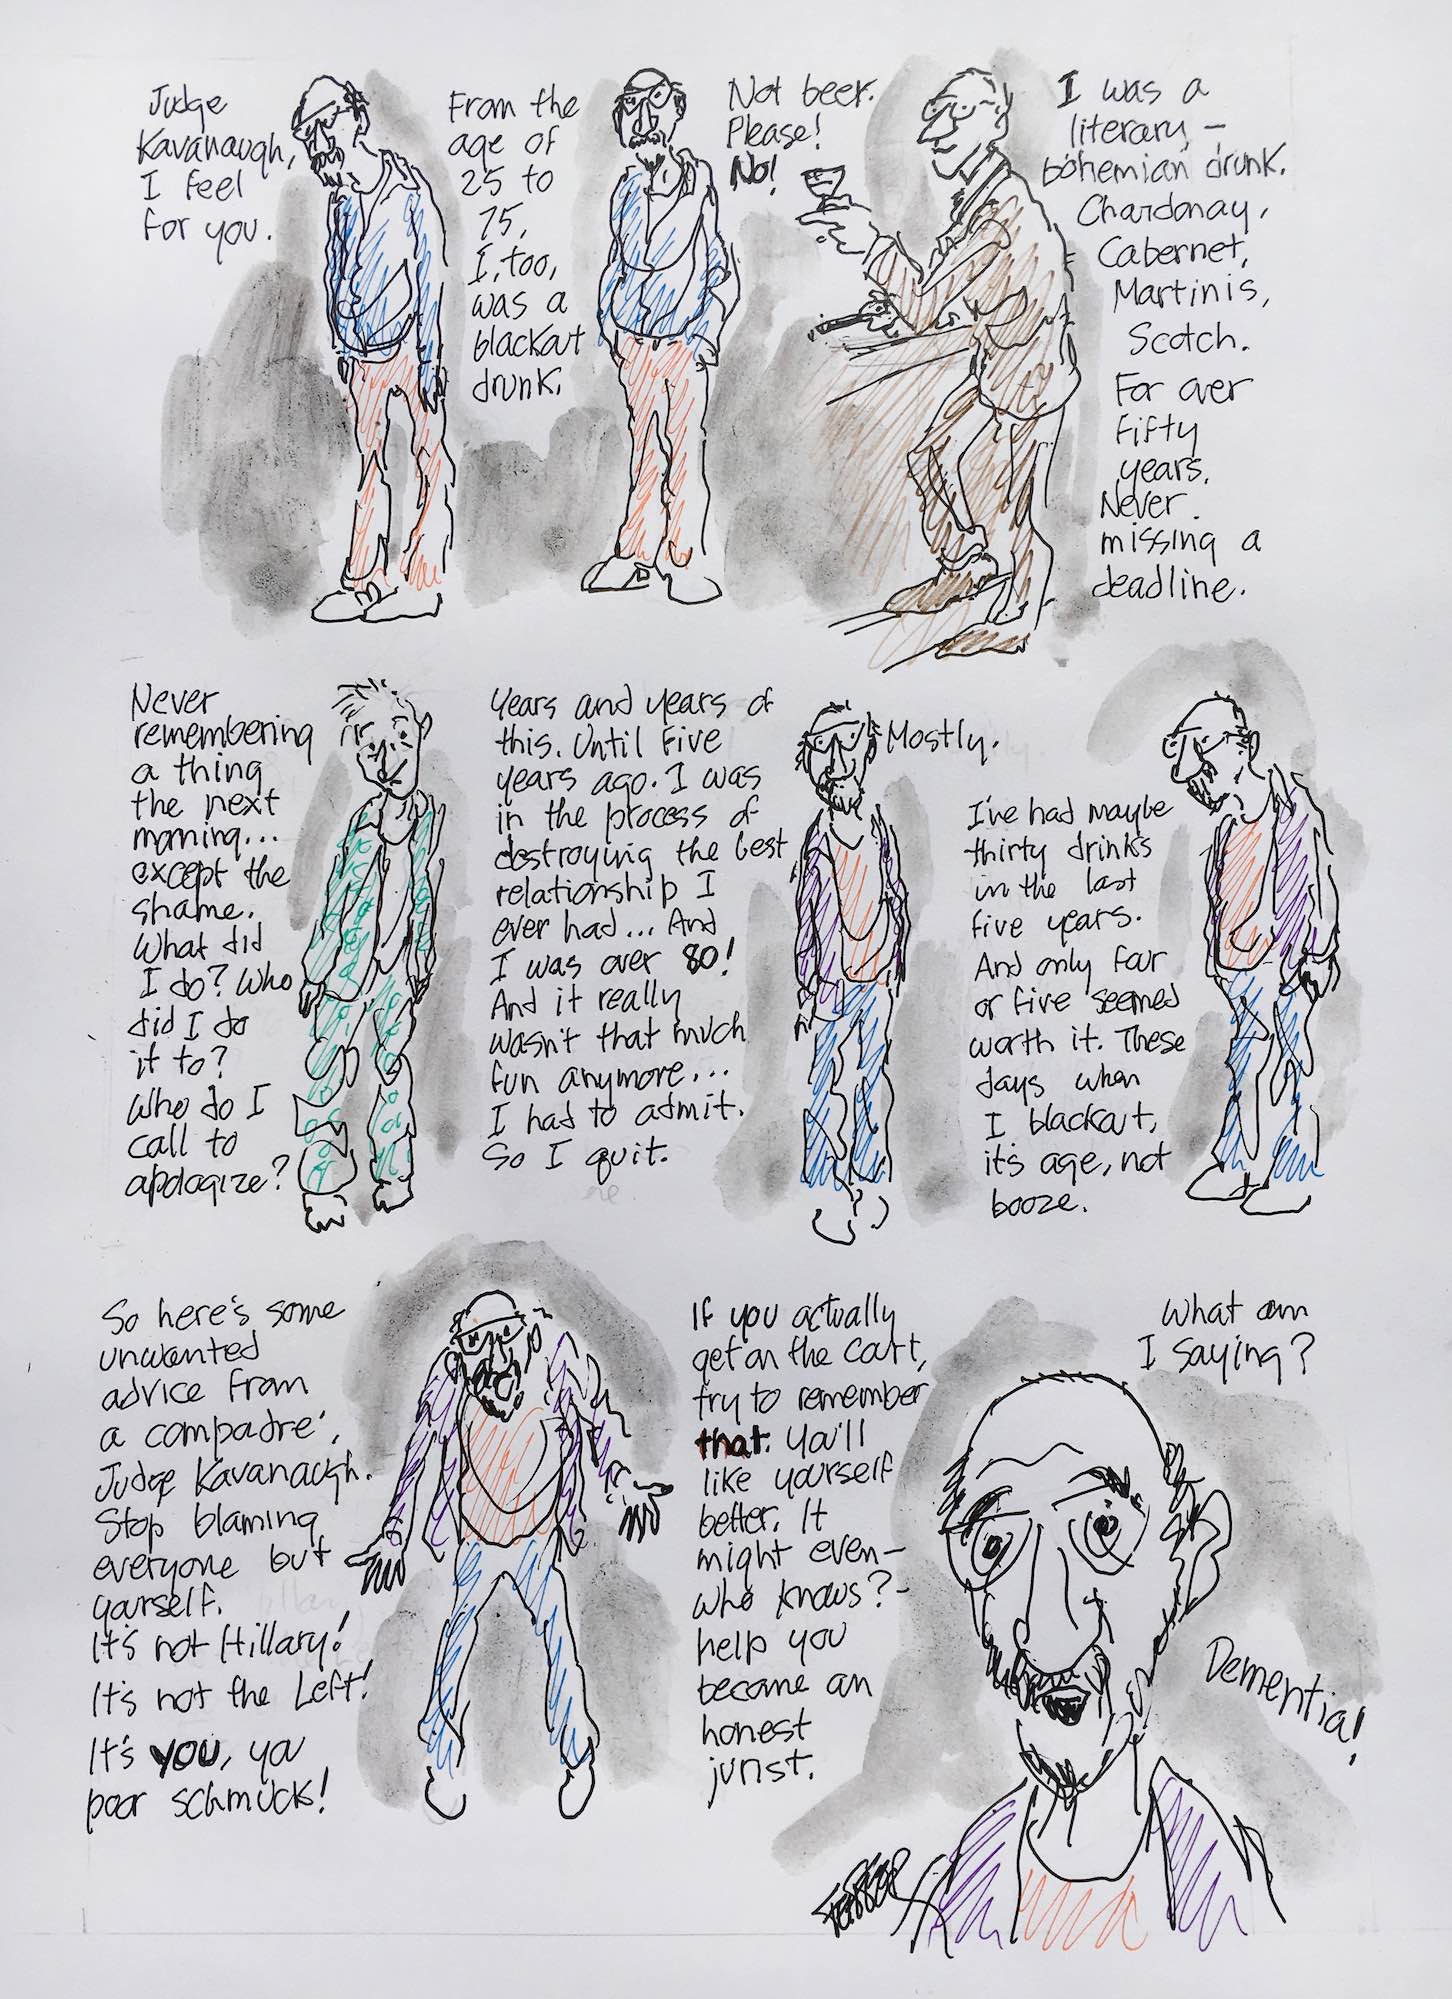 Judge
Kavanaugh,
I feel
for you.
From the
age of
25 to
75,
I, too,
was a
blackout
drunk.
Not beer.
Please!
No!
I was a
literary -
bohemian drunk.
Chardonay,
Cabernet,
Martinis,
Scotch.
For over
fifty
years.
Never
missing a
deadline.
Never
remembering
a thing
the next
morning...
except the
shame.
What did
I do? Who
did I do
it to?
Who do I
call to
apologize?
Years and years of
this. Until five
years ago. I was
in the process of
destroying the best
relationship I
ever had... And
I was over 80!
And it really
wasn't that much
fun anymore...
I had to admit.
So I quit.
Mostly.
I've had maybe
thirty drinks
in the last
five years.
And only four
or five seemed
worth it. These
days when
I blackout,
it's age, not
booze.
So here's some
unwanted
advice from
a compadre,
Judge Kavanaugh.
Stop blaming
everyone but
yourself.
It's not Hillary!
It's not the Left!
It's you, you
poor schmuck!
If you actually
get on the court,
try to remember
that. You'll
like yourself
better. It
might even -
who knows? -
help you
become an
honest
jurist.
What am
I saying?
Dementia!
Feiffer